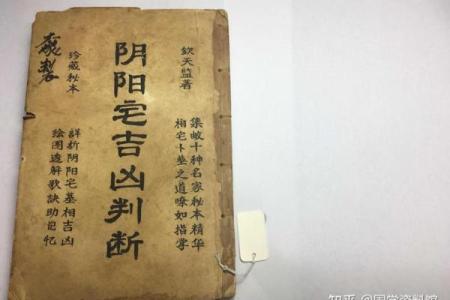 欽天監著
集蚊十种名家秘本精华
相宅卜茔之道嘹如指掌
阴阳宅吉凶判断
珍藏秘本
詳析阴阳宅墓相吉凶
绘图邉解歌訣助记忆
知乎 @国学资料馆